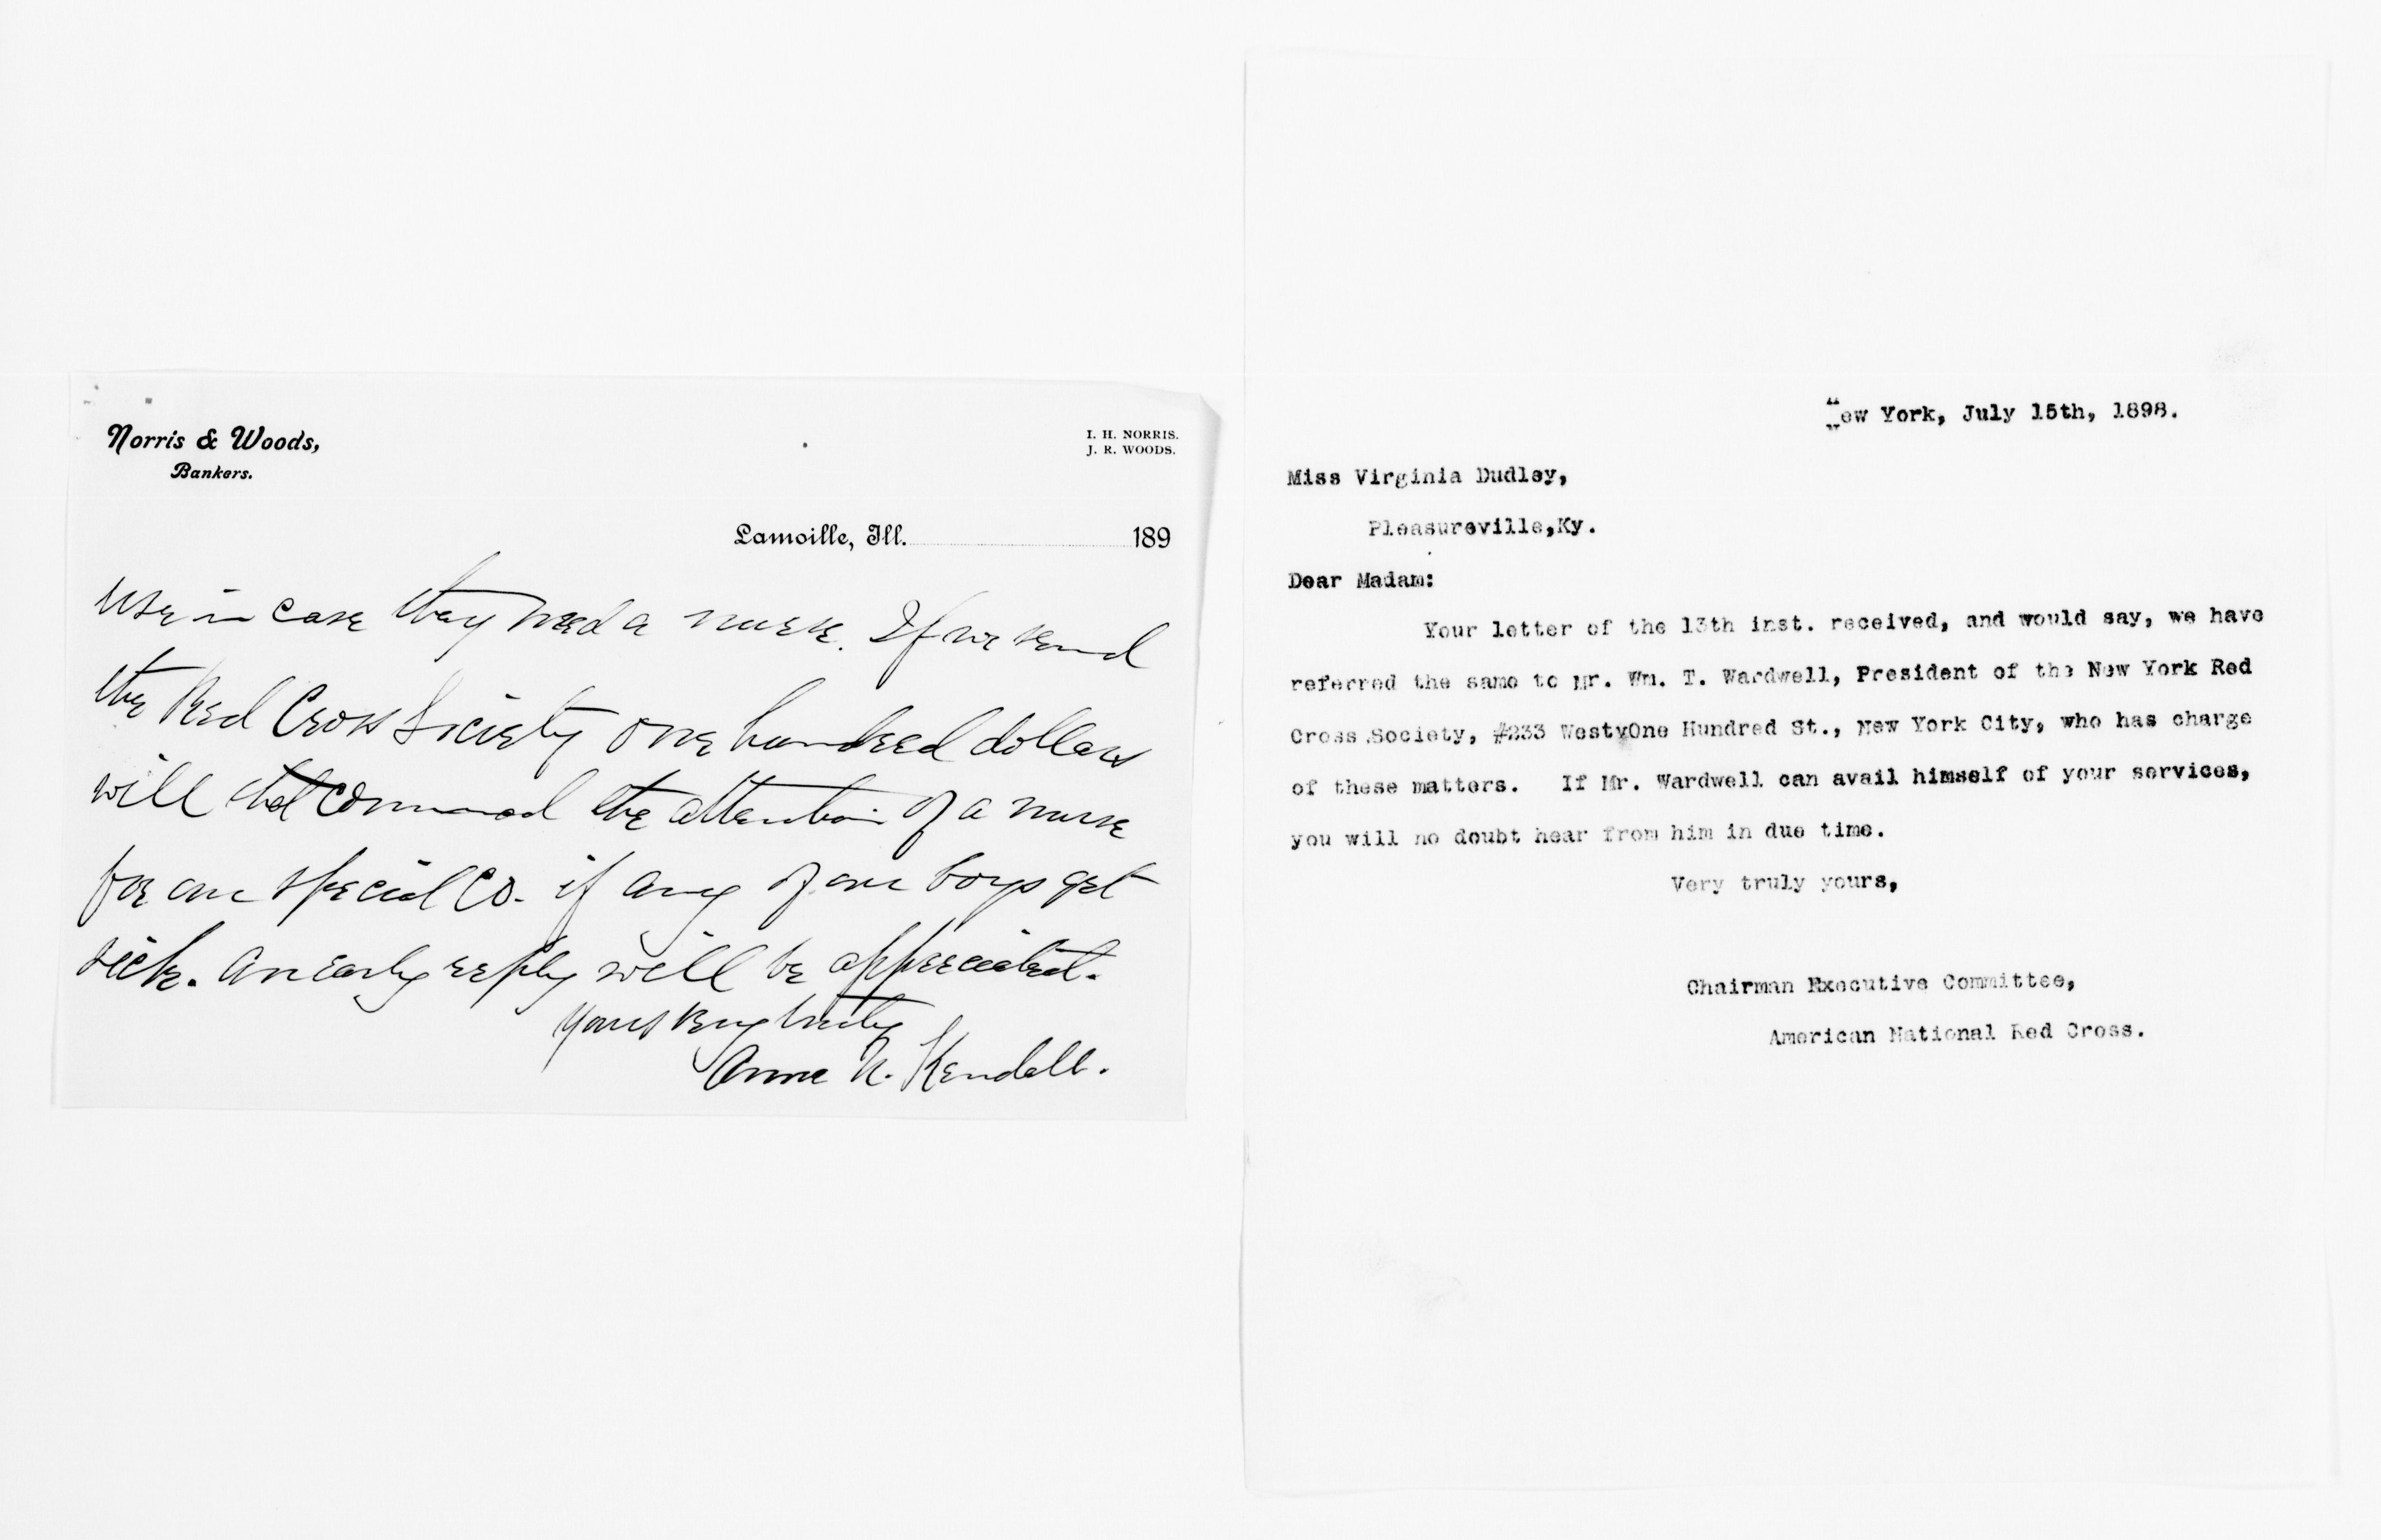 Norris & Woods,
Bankers.
I. H. NORRIS.
J. R. WOODS.
Lamoille, Ill. 189
use in case they need a nurse. If we send
the Red Cross Society one hundred dollars
will that command the attention of a nurse
for our special Co. if any of our boys get
sick. An early reply will be appreciated.
Yours very truly
Anna N. Kendall.
New York, July 15th, 1898.
Miss Virginia Dudley,
Pleasureville,Ky.
Dear Madam:
Your letter of the 13th inst. received, and would say, we have
referred the same to Mr. Wm. T. Wardwell, President of the New York Red
Cross Society, #233 WestyOne Hundred St., New York City, who has charge
of these matters. If Mr. Wardwell can avail himself of your services,
you will no doubt hear from him in due time.
Very truly yours,
Chairman Executive Committee,
American National Red Cross.